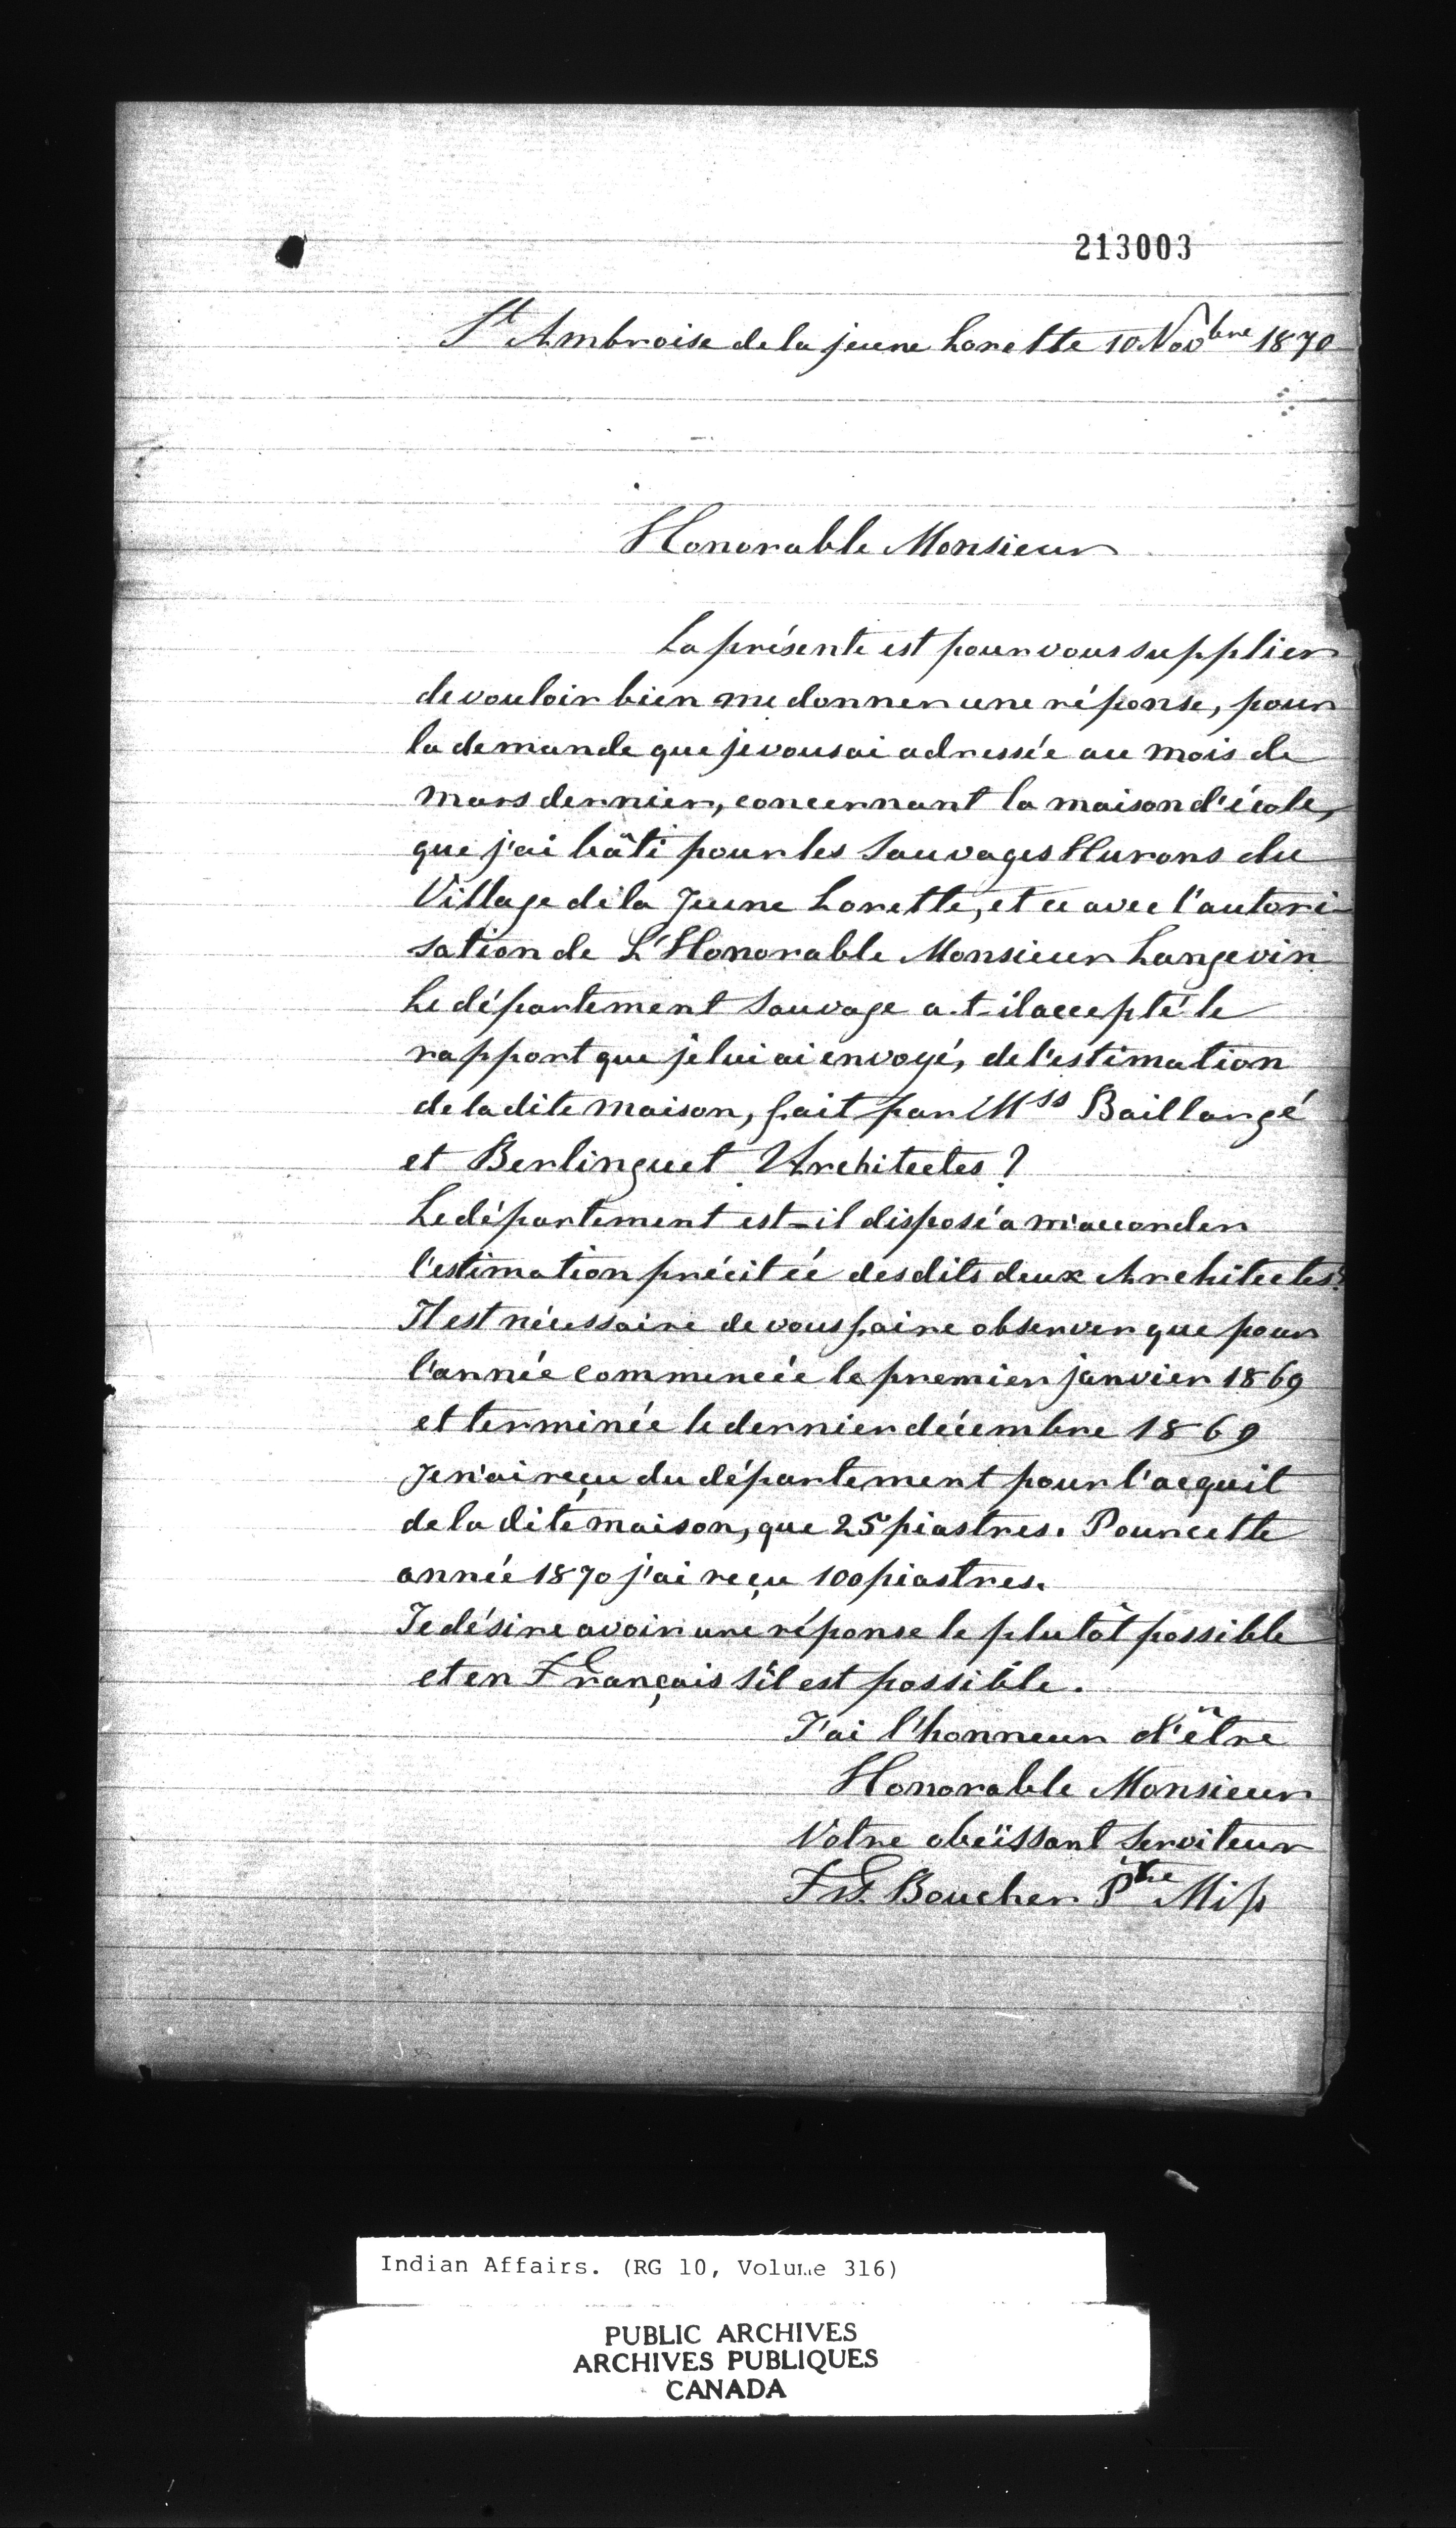 213003
St Ambroise de la jeune Lorette 10 Novbre 1870
Honorable Monsieur
La présente est pour vous supplier
de vouloir bien me donner une réponse, pour
la demande que je vous ai adressée au mois de
Mars dernier, concernant la maison d'école,
que j'ai bâti pour les Sauvages Hurons du
Village de la Jeune Lorette, et ce avec l'autori-
sation de L'Honorable Monsieur Langevin
Le département Sauvage a-t-il accepté le
rapport que je lui ai envoyé, de l'estimation
de la dite maison, fait par Mss Baillargé
et Berlinguet Architectes ?
Le département est-il disposé a m'accorder
l'estimation précitée des dits deux Architectes?
Il est nécessaire de vous faire observer que pour
l'année commencée le premier janvier 1869
et terminée le dernier décembre 1869
Je n'ai reçu du département pour l'acquit
de la dite maison, que 25 piastres. Pour cette
année 1870 j'ai reçu 100 piastres.
Je désire avoir une réponse le plutôt possible
et en Français s'il est possible.
J'ai l'honneur d'être
Honorable Monsieur
Votre obeïssant Serviteur
Frs. Boucher Ptre Miss
Indian Affairs. (RG 10, Volume 316)
PUBLIC ARCHIVES
ARCHIVES PUBLIQUES
CANADA